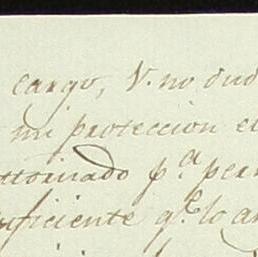 cargo, V. no dud
mi proteccion en
ttorizado p.ª perm
uficiente q.e lo an